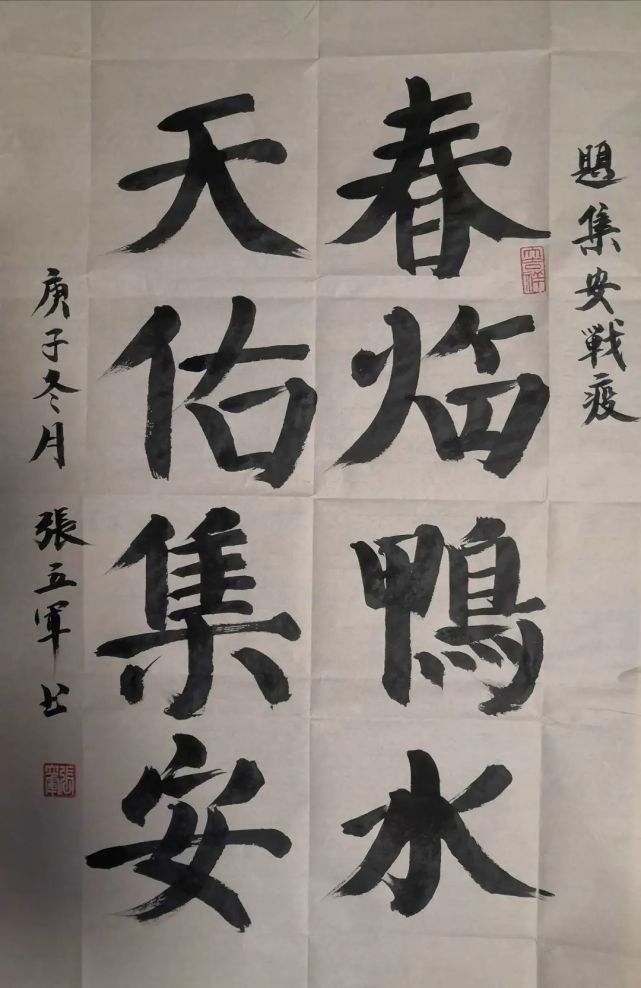 題集安戰疫
春临鴨水
天佑集安
庚子冬月 張立軍书